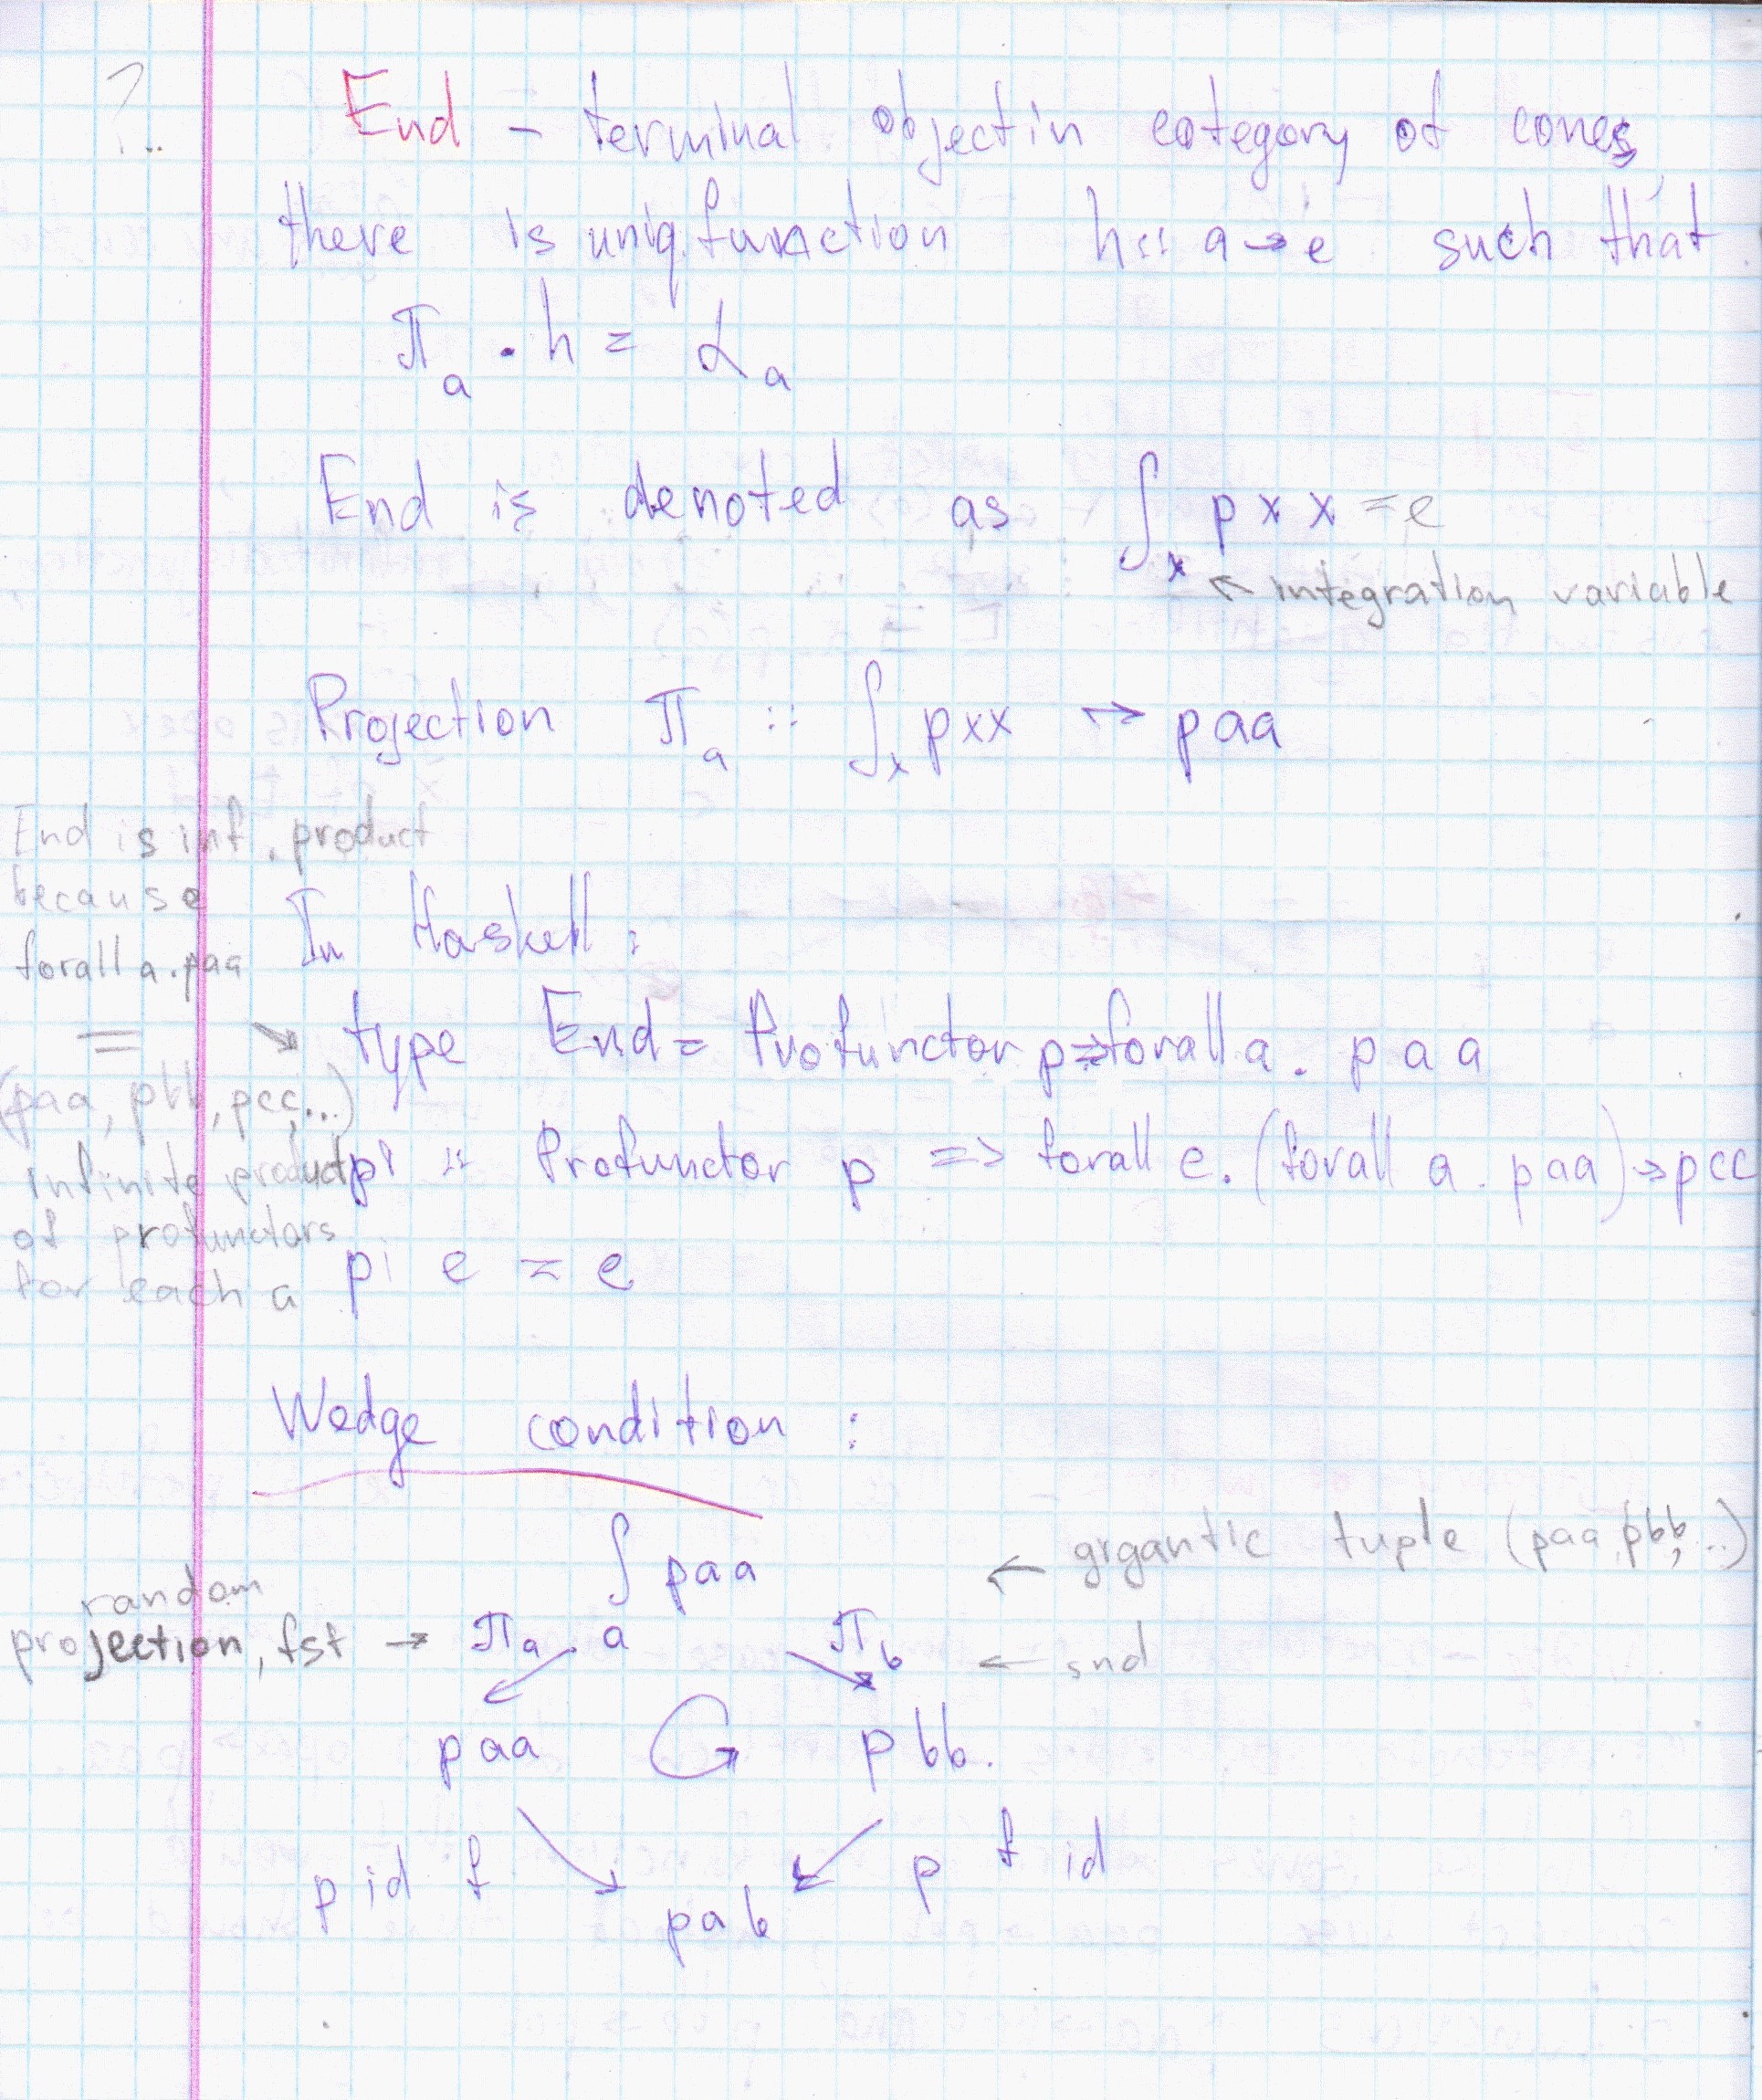 ?..
End - terminal object in category of cones,
there is uniq. function h :: a → e such that
π_a . h = α_a
End is denoted as ∫_x p x x = e
↖ integration variable
Projection π_a :: ∫_x p x x → p a a
End is inf. product
because
forall a. paa
=
(paa, pbb, pcc, ...)
infinite product
of profunctors
for each a
In Haskell:
↘ type End = Profunctor p => forall a. p a a
pi :: Profunctor p => forall c. (forall a. paa) → pcc
pi e = e
Wedge condition :
∫ paa ← gigantic tuple (paa, pbb, ...)
random
projection, fst → π_a . a π_b ← snd
paa pbb.
p id f p f id
pab